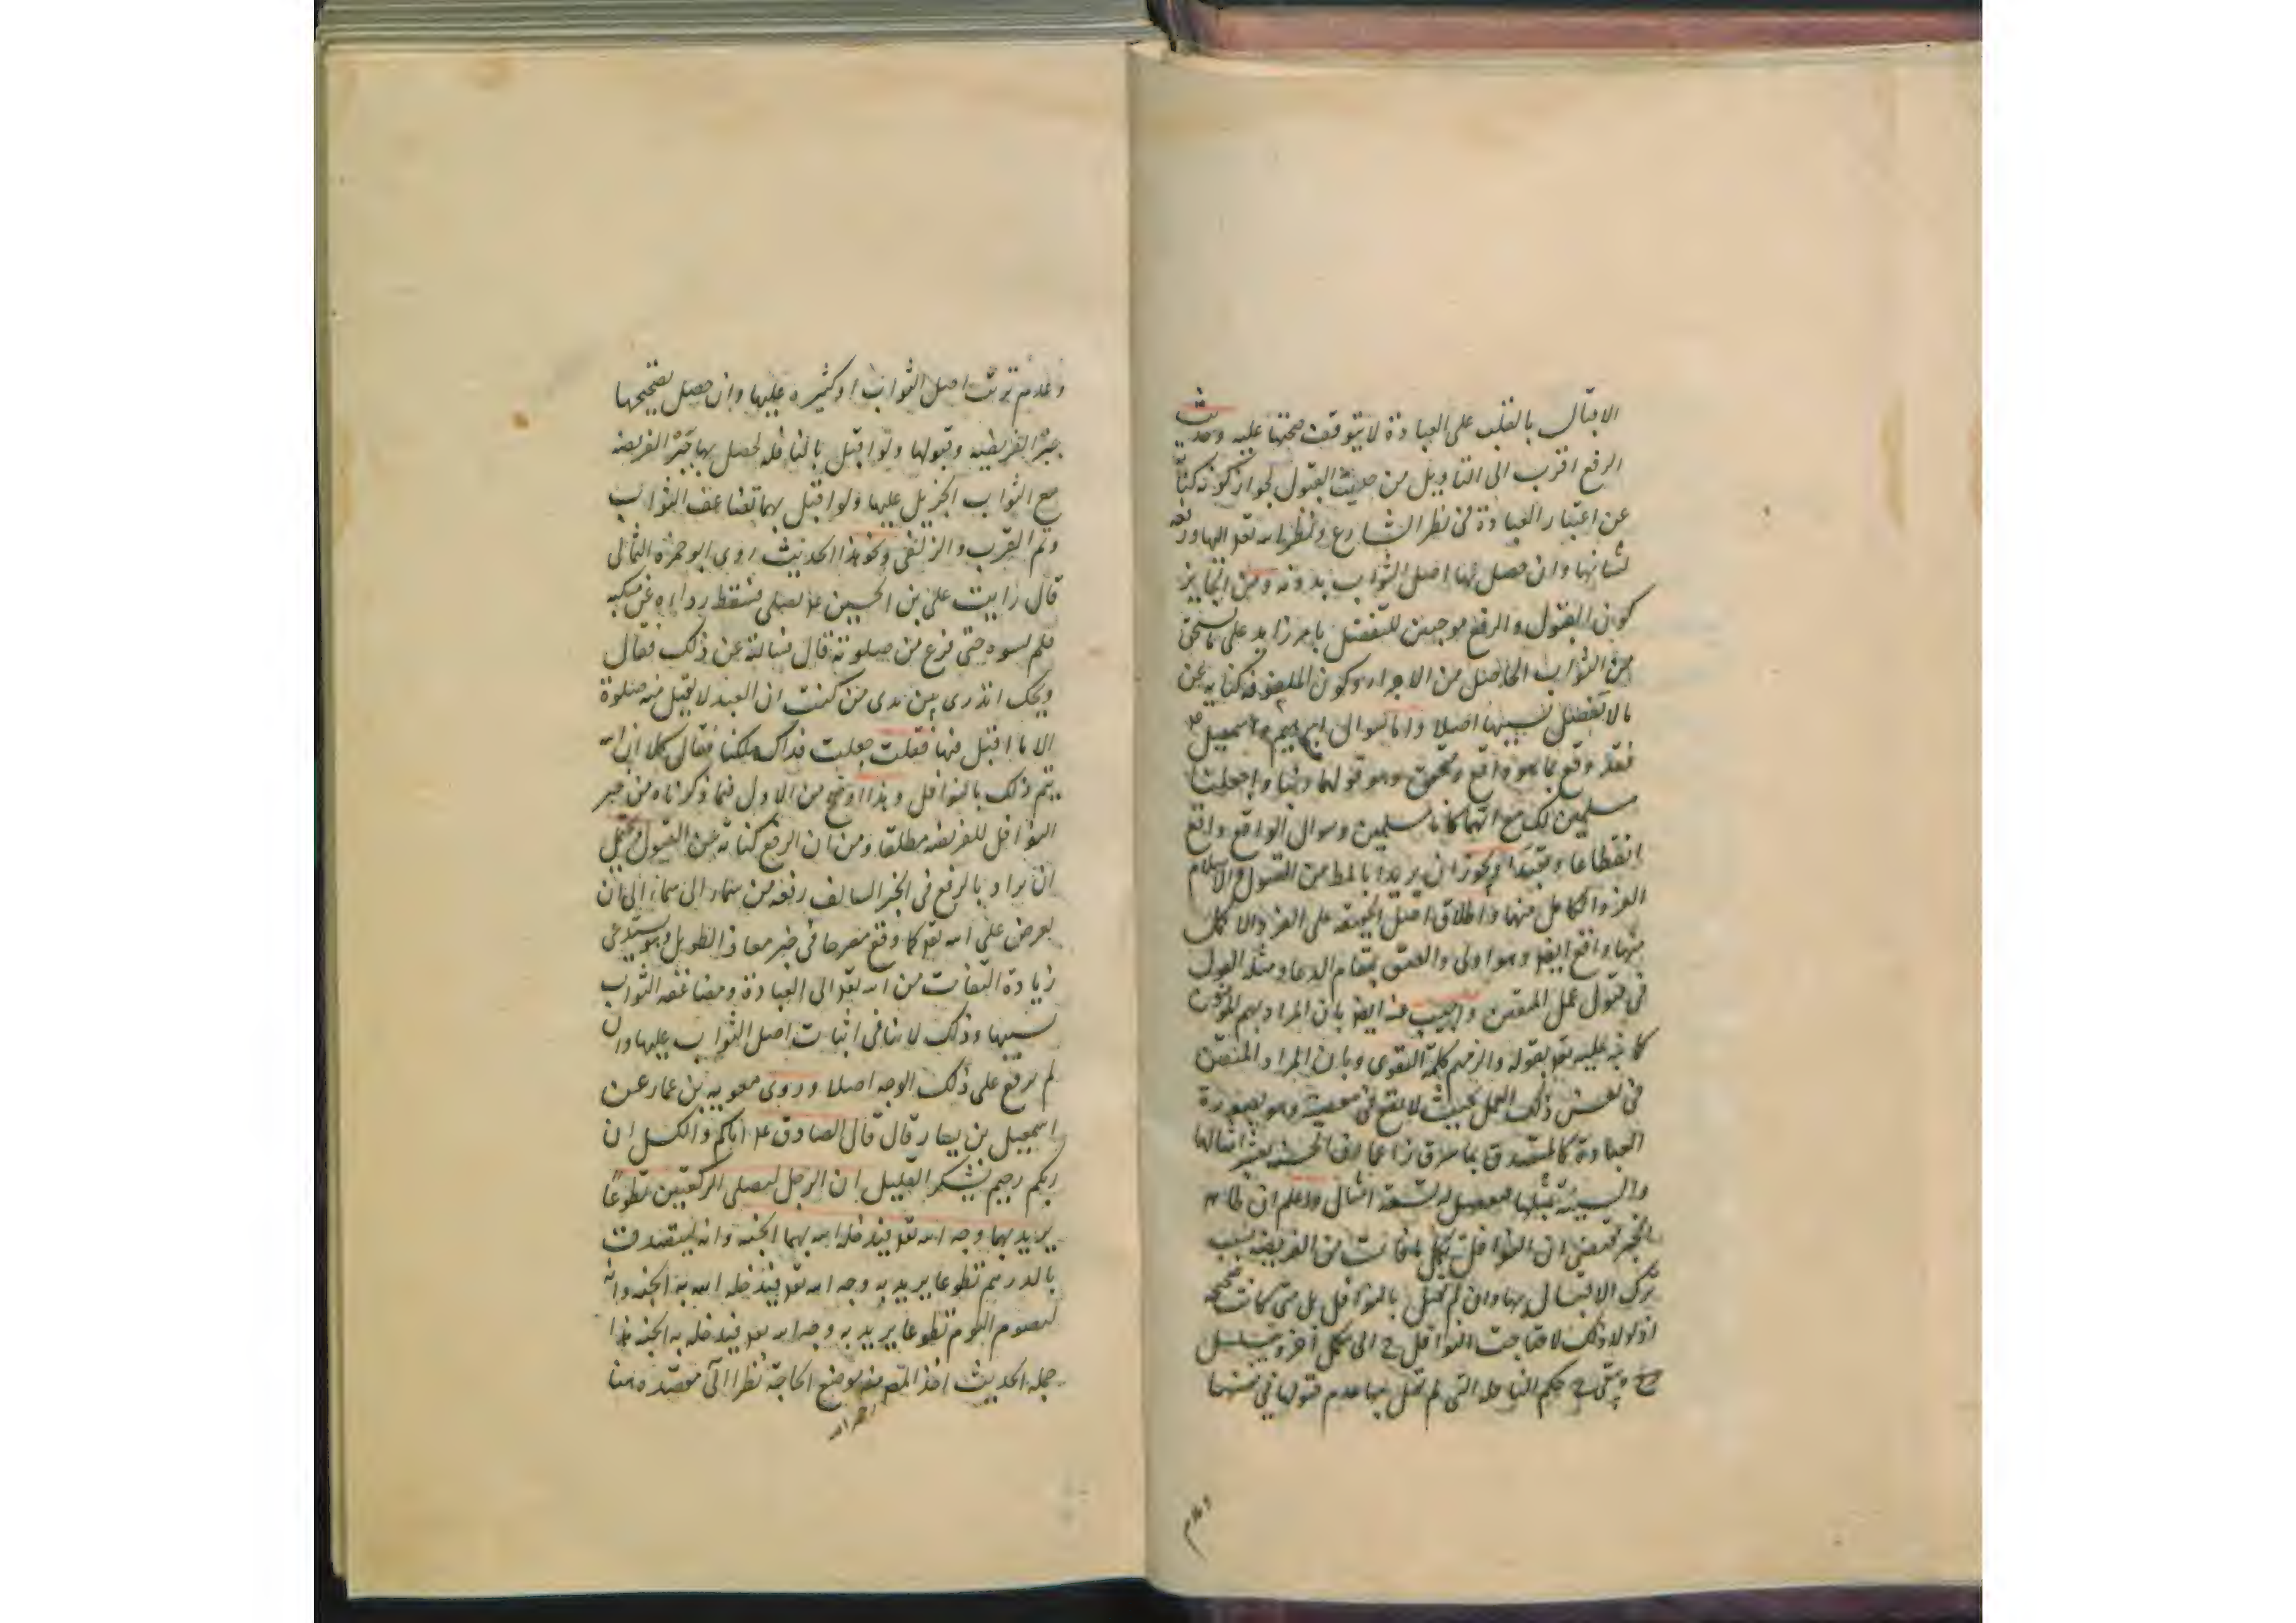 الاقبال بالقلب على العبادة لا يتوقف صحتها عليه وحديث
الرفع اقرب الى التاويل من حديث القبول لجواز كونه كناية
عن اعتبار العبادة فى نظر الشارع ونظر الله تعه اليها ورفعه
لشانها وان حصل لها اصل الثواب بدونه ومن الجايز
كون القبول والرفع موجبين للتفضل بامر زايد على ما يستحق
من الثواب الحاصل من الاجزاء وكون الملفوفة كناية عن
ما لا تفضل بسببها اصلا واما سوال ابرهيم واسمعيل ع
فقد وقع بما هو واقع وهو قولهما ربنا واجعلنا
مسلمين لك مع انهما كانا مسلمين وسوال الواقع واقع
انقطاعا وتعبدا ويجوز ان يريدا بالمط من القبول والاسلام
الفرد الكامل منها واطلاق اصل الحقيقة على الفرد الاكمل
منها واقع ايض وهو اولى واليق بمقام الدعا ومثله القول
فى قبول عمل المتقين واجيب عنه ايض بان المراد بهم المؤمنون
كما نبه عليه تعه بقوله والزمهم كلمة التقوى وبان المراد المتقين
فى نفس ذلك العمل بحيث لا يقع فى معصية وهو بصورة
العبادة كالمتصدق بما سرق زاعما ان الحسنة بعشر امثالها
والسيئة بمثلها فيفضل له تسعة امثال واعلم ان ظاهر
الخبر يقتضى ان النوافل تكمل ما فات من الفريضة بسبب
ترك الاقبال بها وان لم يقبل بالنوافل بل متى كانت صحيحة
اذ لولا ذلك لاحتاجت النوافل ح الى مكمل اخر ويتسلسل
ويبقى ح حكم النافلة التى لم يقبل بها عدم قبولها فى نفسها
وعدم
وعدم ترتب اصل الثواب او كثيره عليها وان حصل بصحيحها
جبر الفريضة وقبولها ولو اقبل بالنافلة لحصل بها جبر الفريضة
مع الثواب الجزيل عليها ولو اقبل بهما تضاعف الثواب
وتم القرب والزلفى ونحو هذا الحديث روى ابو حمزة الثمالى
قال رايت على بن الحسين ع يصلى فسقط رداؤه عن منكبه
فلم يسوه حتى فرغ من صلوته قال فسالته عن ذلك فقال
ويحك اتدرى بين يدى من كنت ان العبد لا يقبل منه صلوة
الا ما اقبل منها فقلت جعلت فداك هلكنا فقال كلا ان الله
يتم ذلك بالنوافل وهذا اوضح من الاول فيما ذكرناه من جبر
النوافل للفريضة مطلقا ومن ان الرفع كناية عن القبول ويحتمل
ان يراد بالرفع فى الخبر السالف رفعه من سماء الى سماء الى ان
يعرض على الله تعه كما وقع مصرحا فى خبر معاذ الطويل وهو يستدعى
زيادة التفات من الله تعه الى العبادة ومضاعفة الثواب
بسببها وذلك لا ينافى اثبات اصل الثواب عليها وان
لم يرفع على ذلك الوجه اصلا وروى معوية بن عمار عن
اسمعيل بن يسار قال قال الصادق ع اياكم والكسل ان
ربكم رحيم يشكر القليل ان الرجل ليصلى الركعتين تطوعا
يريد بهما وجه الله تعه فيدخله الله بهما الجنة وانه ليتصدق
بالدرهم تطوعا يريد به وجه الله تعه فيدخله الله به الجنة وانه
ليصوم اليوم تطوعا يريد به وجه الله تعه فيدخله به الجنة هذا
جملة الحديث اخذ المصم منه موضع الحاجة نظرا الى مقصده هنا